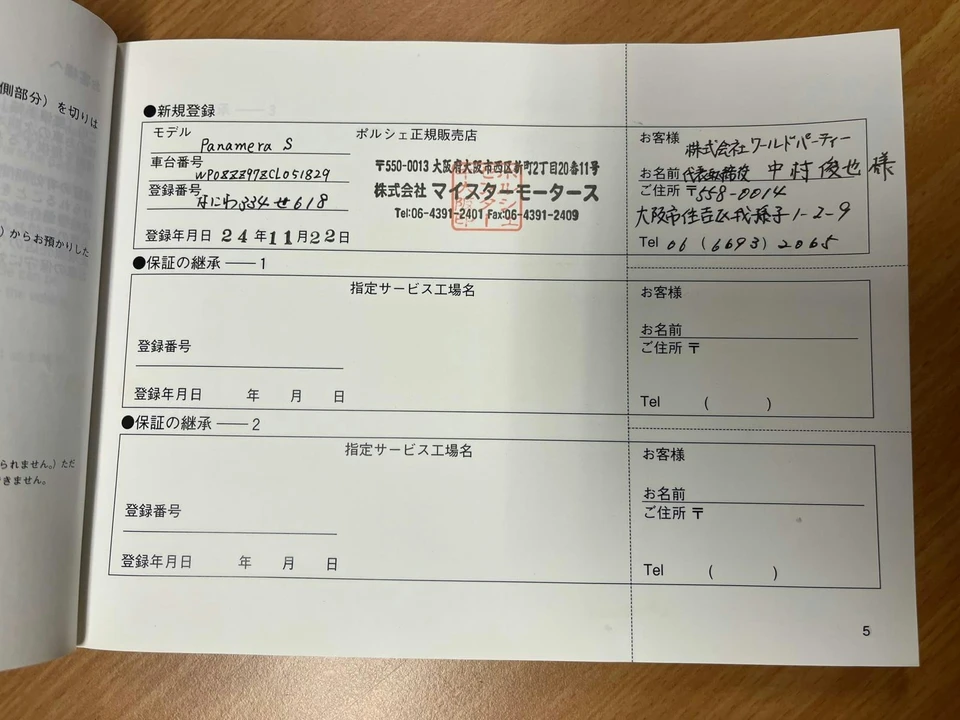 側部分）を切りは
）からお預かりした
られません。）ただ
きません。
●新規登録
モデル Panamera S
車台番号 WP0ZZZ97ZCL051829
登録番号 なにわ334せ618
登録年月日 24年11月22日
ポルシェ正規販売店
〒550-0013 大阪府大阪市西区新町2丁目20番11号
株式会社 マイスターモータース
Tel:06-4391-2401 Fax:06-4391-2409
お客様 株式会社ワールドパーティー
お名前 代表取締役 中村俊也 様
ご住所 〒558-0014
大阪市住吉区我孫子1-2-9
Tel 06 (6693) 2065
●保証の継承 —— 1
指定サービス工場名
登録番号
登録年月日 年 月 日
お客様
お名前
ご住所 〒
Tel ( )
●保証の継承 —— 2
指定サービス工場名
登録番号
登録年月日 年 月 日
お客様
お名前
ご住所 〒
Tel ( )
5